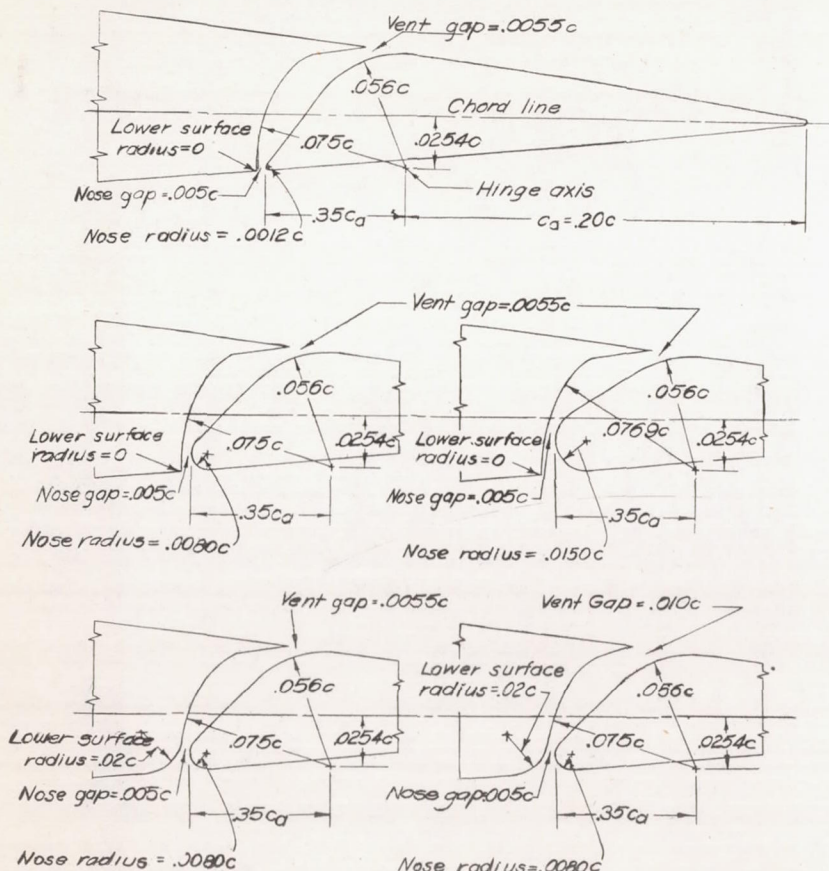 Vent gap=.0055c
.056c
Chord line
Lower surface
radius=0
.075c
.0254c
Nose gap=.005c
Hinge axis
.35ca
ca=.20c
Nose radius=.0012c
Vent gap=.0055c
.056c
.056c
Lower surface
radius=0
.075c
.0254c
Lower surface
radius=0
.0769c
.0254c
Nose gap=.005c
Nose gap=.005c
.35ca
.35ca
Nose radius=.0080c
Nose radius=.0150c
Vent gap=.0055c
Vent Gap=.010c
Lower surface
radius=.02c
.056c
.056c
Lower surface
radius=.02c
.075c
.0254c
.075c
.0254c
Nose gap=.005c
Nose gap=.005c
.35ca
.35ca
Nose radius=.0080c
Nose radius=.0080c